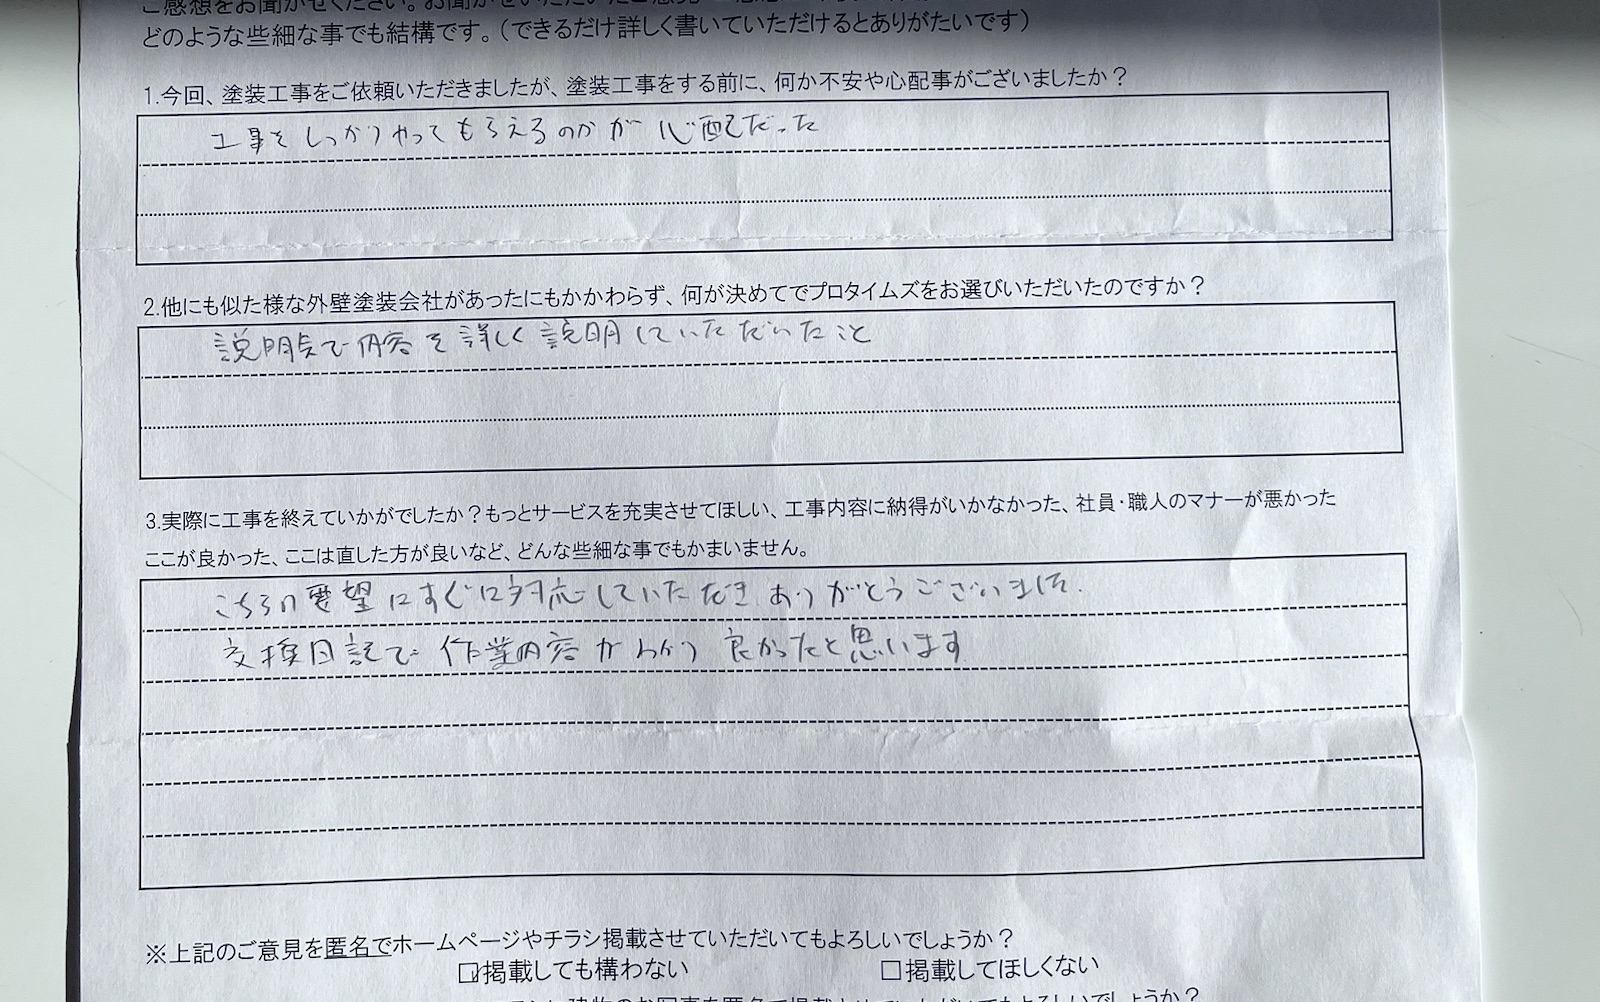 ご感想をお聞かせください。お聞かせいただいたご意見・ご感想
どのような些細な事でも結構です。（できるだけ詳しく書いていただけるとありがたいです）
1.今回、塗装工事をご依頼いただきましたが、塗装工事をする前に、何か不安や心配事がございましたか？
工事をしっかりやってもらえるのかが心配だった
2.他にも似た様な外壁塗装会社があったにもかかわらず、何が決めてでプロタイムズをお選びいただいたのですか？
説明点で内容を詳しく説明していただいたこと
3.実際に工事を終えていかがでしたか？もっとサービスを充実させてほしい、工事内容に納得がいかなかった、社員・職人のマナーが悪かった
ここが良かった、ここは直した方が良いなど、どんな些細な事でもかまいません。
こちらの要望にすぐに対応していただきありがとうございました.
交換日記で作業内容がわかり良かったと思います
※上記のご意見を匿名でホームページやチラシ掲載させていただいてもよろしいでしょうか？
☑掲載しても構わない □掲載してほしくない
建物のお写真を匿名で掲載させていただいてもよろしいでしょうか？